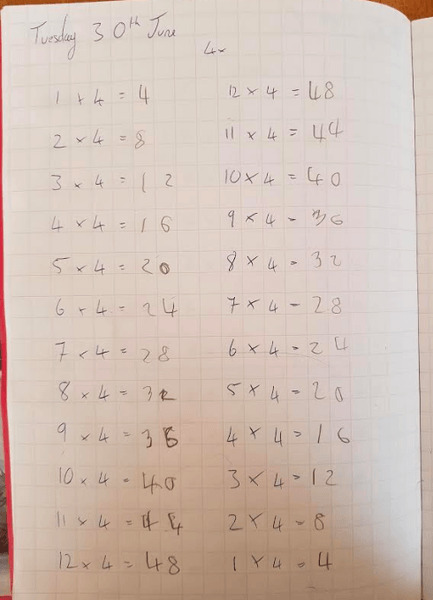 Tuesday 30th June
4x
1 x 4 = 4
2 x 4 = 8
3 x 4 = 12
4 x 4 = 16
5 x 4 = 20
6 x 4 = 24
7 x 4 = 28
8 x 4 = 32
9 x 4 = 36
10 x 4 = 40
11 x 4 = 44
12 x 4 = 48
12 x 4 = 48
11 x 4 = 44
10 x 4 = 40
9 x 4 = 36
8 x 4 = 32
7 x 4 = 28
6 x 4 = 24
5 x 4 = 20
4 x 4 = 16
3 x 4 = 12
2 x 4 = 8
1 x 4 = 4